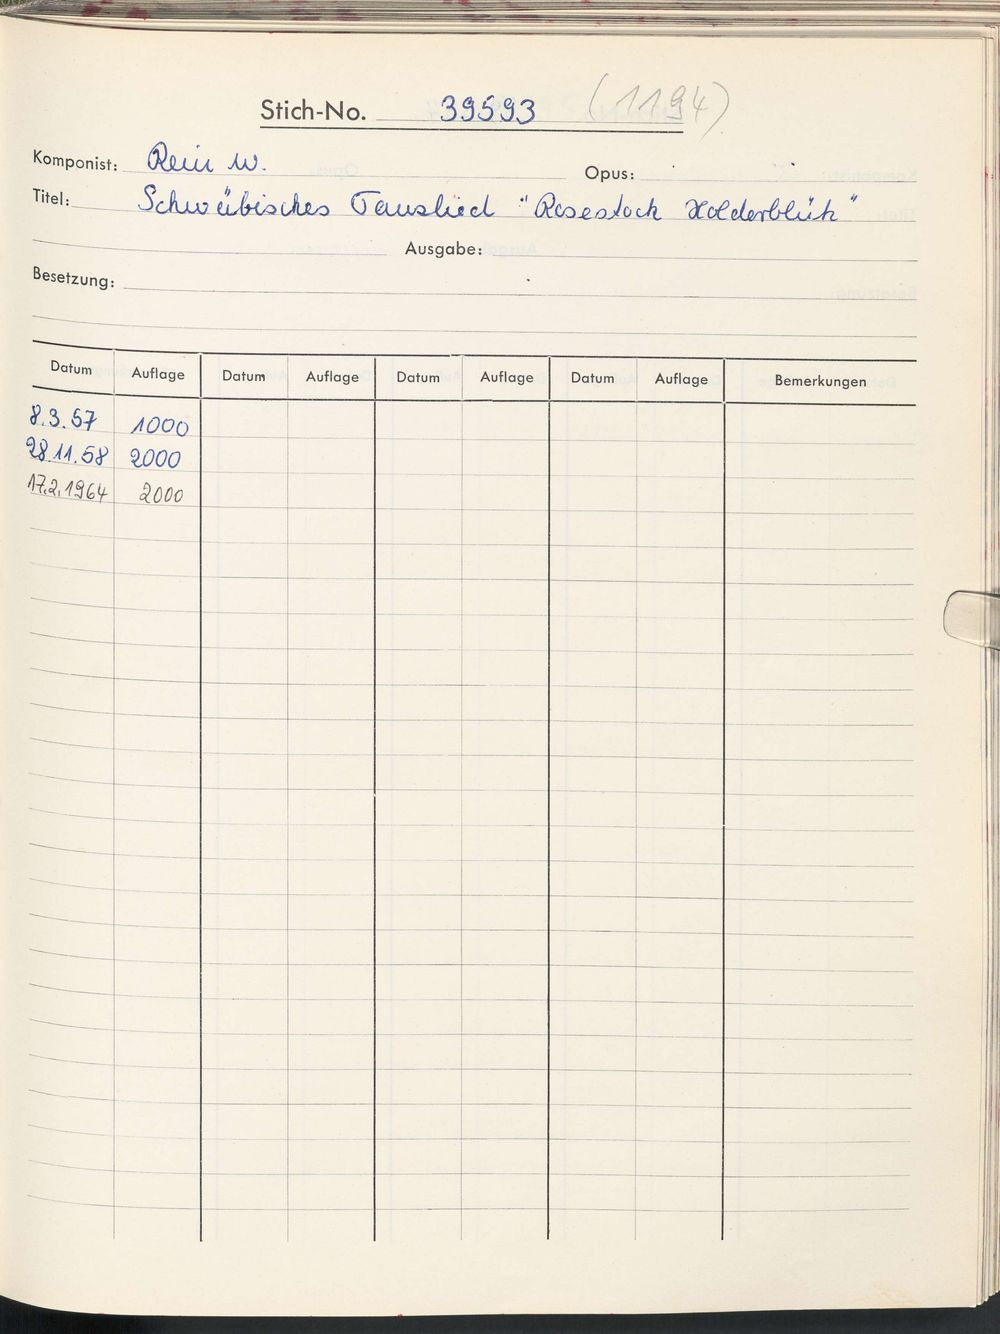 Stich-No. 39593 (1194)
Komponist: Rein W. Opus:
Titel: Schwäbisches Tanzlied "Rosestock Holderblüh"
Ausgabe:
Besetzung:
Datum Auflage Datum Auflage Datum Auflage Datum Auflage Bemerkungen
8.3.57 1000
28.11.58 2000
17.2.1964 2000